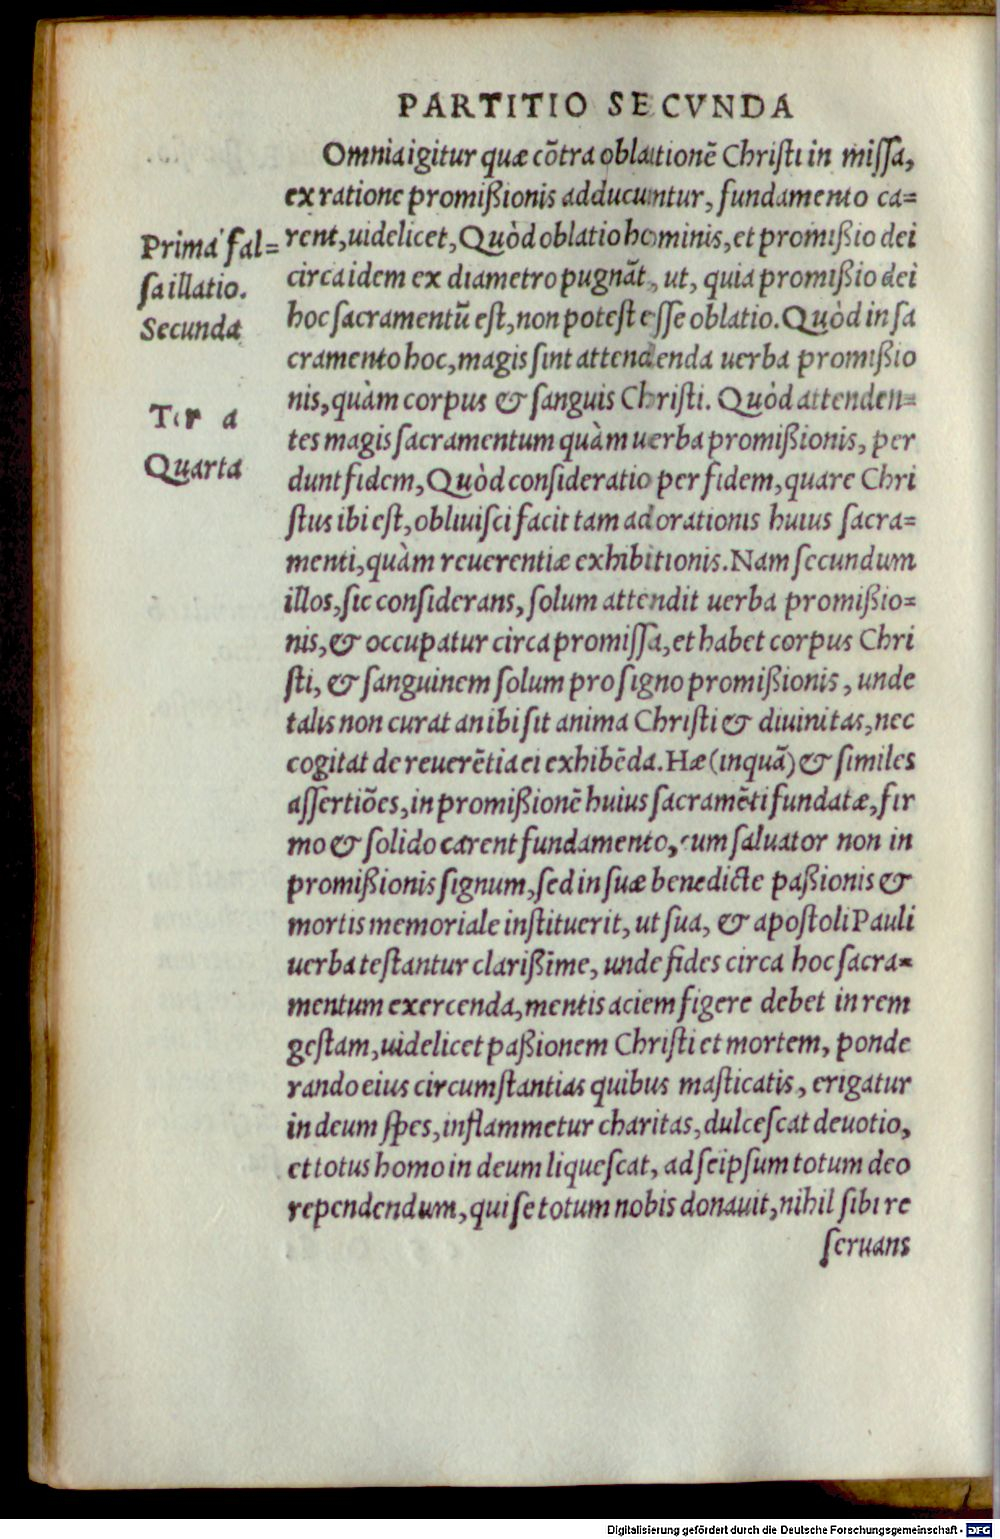 PARTITIO SECVNDA
Omnia igitur quæ cōtra oblationē Christi in missa,
ex ratione promißionis adducuntur, fundamento ca=
rent, uidelicet, Quòd oblatio hominis, et promißio dei
circa idem ex diametro pugnāt, ut, quia promißio dei
hoc sacramentū est, non potest esse oblatio. Quòd in sa
cramento hoc, magis sint attendenda uerba promißio
nis, quàm corpus & sanguis Christi. Quòd attenden=
tes magis sacramentum quàm uerba promißionis, per
dunt fidem, Quòd consideratio per fidem, quare Chri
stus ibi est, obliuisci facit tam adorationis huius sacra=
menti, quàm reuerentiæ exhibitionis. Nam secundum
illos, sic considerans, solum attendit uerba promißio=
nis, & occupatur circa promissa, et habet corpus Chri
sti, & sanguinem solum pro signo promißionis, unde
talis non curat an ibi sit anima Christi & diuinitas, nec
cogitat de reuerētia ei exhibēda. Hæ (inquā) & similes
assertiōes, in promißionē huius sacramēti fundatæ, fir
mo & solido carent fundamento, cum saluator non in
promißionis signum, sed in suæ benedicte paßionis &
mortis memoriale instituerit, ut sua, & apostoli Pauli
uerba testantur clarißime, unde fides circa hoc sacra=
mentum exercenda, mentis aciem figere debet in rem
gestam, uidelicet paßionem Christi et mortem, ponde
rando eius circumstantias quibus masticatis, erigatur
in deum spes, inflammetur charitas, dulcescat deuotio,
et totus homo in deum liquescat, ad seipsum totum deo
rependendum, qui se totum nobis donauit, nihil sibi re
seruans
Prima fal=
sa illatio.
Secunda
Ter a
Quarta
Digitalisierung gefördert durch die Deutsche Forschungsgemeinschaft - DFG